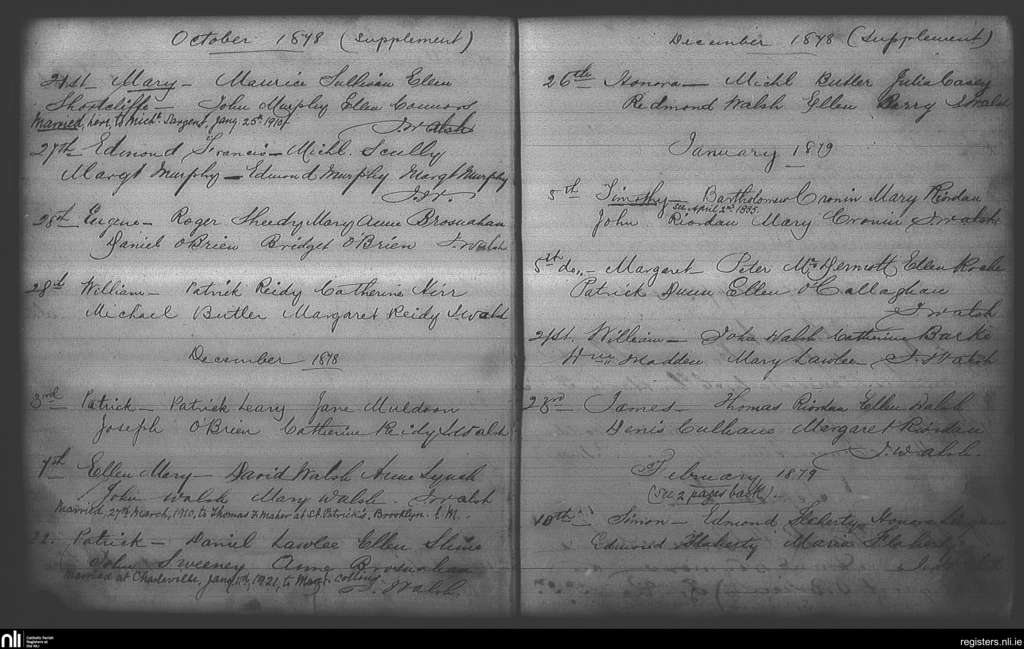 October 1878 (Supplement)
21st Mary - Maurice Sullivan Ellen
Shortcliffe - John Murphy Ellen Connors
Married, here, to Mich. Sargent, Jany 25th 1910. J. Walsh
27th Edmond Francis - Michl. Scully
Margt Murphy - Edmond Murphy Margt Murphy
J. W.
28th Eugene - Roger Sheedy Mary Anne Brosnahan
Daniel O'Brien Bridget O'Brien J. Walsh
28th William - Patrick Reidy Catherine Kirr
Michael Butler Margaret Reidy J. Walsh
December 1878
3rd Patrick - Patrick Leary Jane Muldoon
Joseph O'Brien Catherine Reidy J. Walsh
7th Ellen Mary - David Walsh Anne Lynch
John Walsh Mary Walsh. J. Walsh
Married, 27th March, 1910, to Thomas F. Maher at St. Patrick's, Brooklyn.
22. Patrick - Daniel Lawlee Ellen Shine
John Sweeney Anne Brosnahan
Married at Charleville, Jany 1921, to Margt Collins. J. Walsh
December 1878 (Supplement)
26th Honora - Michl Butler Julia Casey
Redmond Walsh Ellen Berry J. Walsh
January 1879
5th Timothy - Bartholomew Cronin Mary Riordan
See April 2nd 1885.
John Riordan Mary Cronin J. Walsh
5th do. - Margaret Peter McDermott Ellen Roche
Patrick Dunn Ellen O'Callaghan
J. Walsh
21st. William - John Walsh Catherine Barke
Wm Madden Mary Lawlee J. Walsh
23rd James - Thomas Riordan Ellen Walsh
Denis Culhane Margaret Riordan
J. Walsh.
February 1879
(See 2 pages back).
10th Simon - Edmond Flaherty Honora
Edmond Flaherty Maria Flaherty
nli Catholic Parish Registers at the NLI
registers.nli.ie